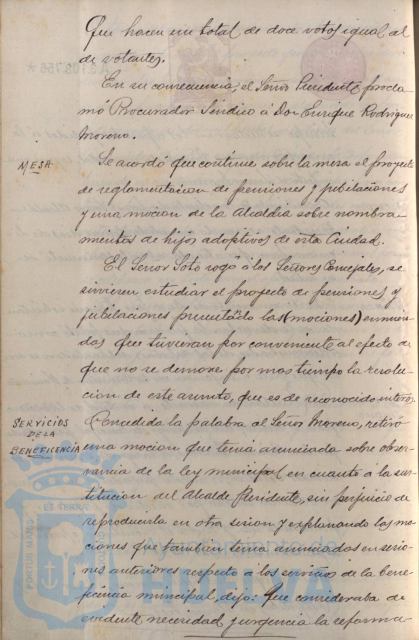 Que hacen un total de doce votos igual al
de votantes.
En su consecuencia, el Señor Presidente procla
mó Procurador Síndico á Don Enrique Rodríguez
Moreno.
MESA
Se acordó que continúe sobre la mesa el proyecto
de reglamentacion de pensiones y jubilaciones
y una mocion de la Alcaldia sobre nombra-
mientos de hijos adoptivos de esta Ciudad.
El Señor Soto rogó á los Señores Concejales, se
sirvieran estudiar el proyecto de pensiones y
jubilaciones presentando las (mociones) enmien
das que tuvieran por conveniente al efecto de
que no se demore por mas tiempo la resolu-
cion de este asunto, que es de reconocido interés.
SERVICIOS
DE LA
BENEFICENCIA
Concedida la palabra al Señor Moreno, retiró
una mocion que tenia anunciada sobre obser-
vancia de la ley municipal en cuanto á la sus-
titucion del Alcalde Presidente, sin perjuicio de
reproducirla en otra sesion y explanando las mo-
ciones que tambien tenia anunciadas en sesio-
nes anteriores respecto á los servicios de la bene-
ficencia municipal, dijo: Que consideraba de
evidente necesidad y urgencia la reforma